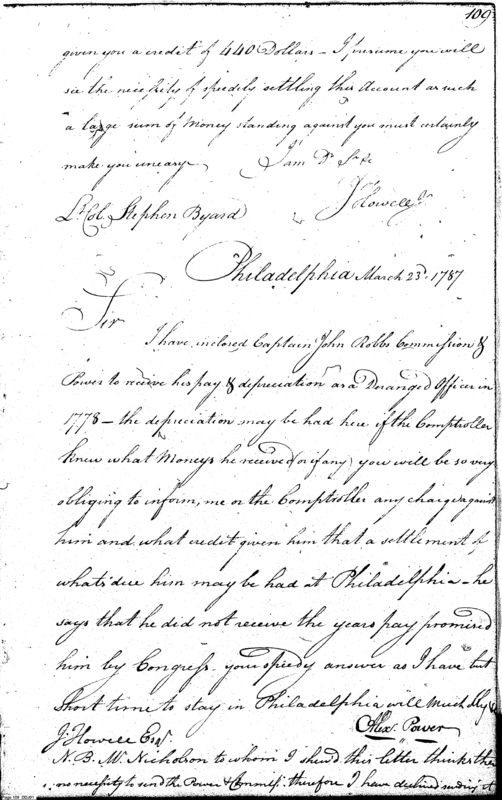 109
given you a credit of 440 Dollars – I presume you will
see the necessity of speedily settling this Account as such
a large sum of Money standing against you must certainly
make you uneasy I am Dr Sr &c
J Howell Jr
Lt Col. Stephen Byard
Philadelphia March 23d 1787
Sir
I have inclosed Captain John Robbs Commission &
Power to receive his pay & depreciation as a Deranged Officer in
1778 – the depreciation may be had here if the Comptroller
knew what Moneys he received (or if any) you will be so very
obliging to inform, me or the Comptroller any charges against
him and what credit given him that a settlement of
whats due him may be had at Philadelphia – he
says that he did not receive the years pay promised
him by Congress. your speedy answer as I have but
short time to stay in Philadelphia will much
Alexr. Power
J. Howell Esqr.
N.B. Mr. Nicholson to whom I shew'd this letter thinks ther
no necessity to send the Power & Commiss: therefore I have declined